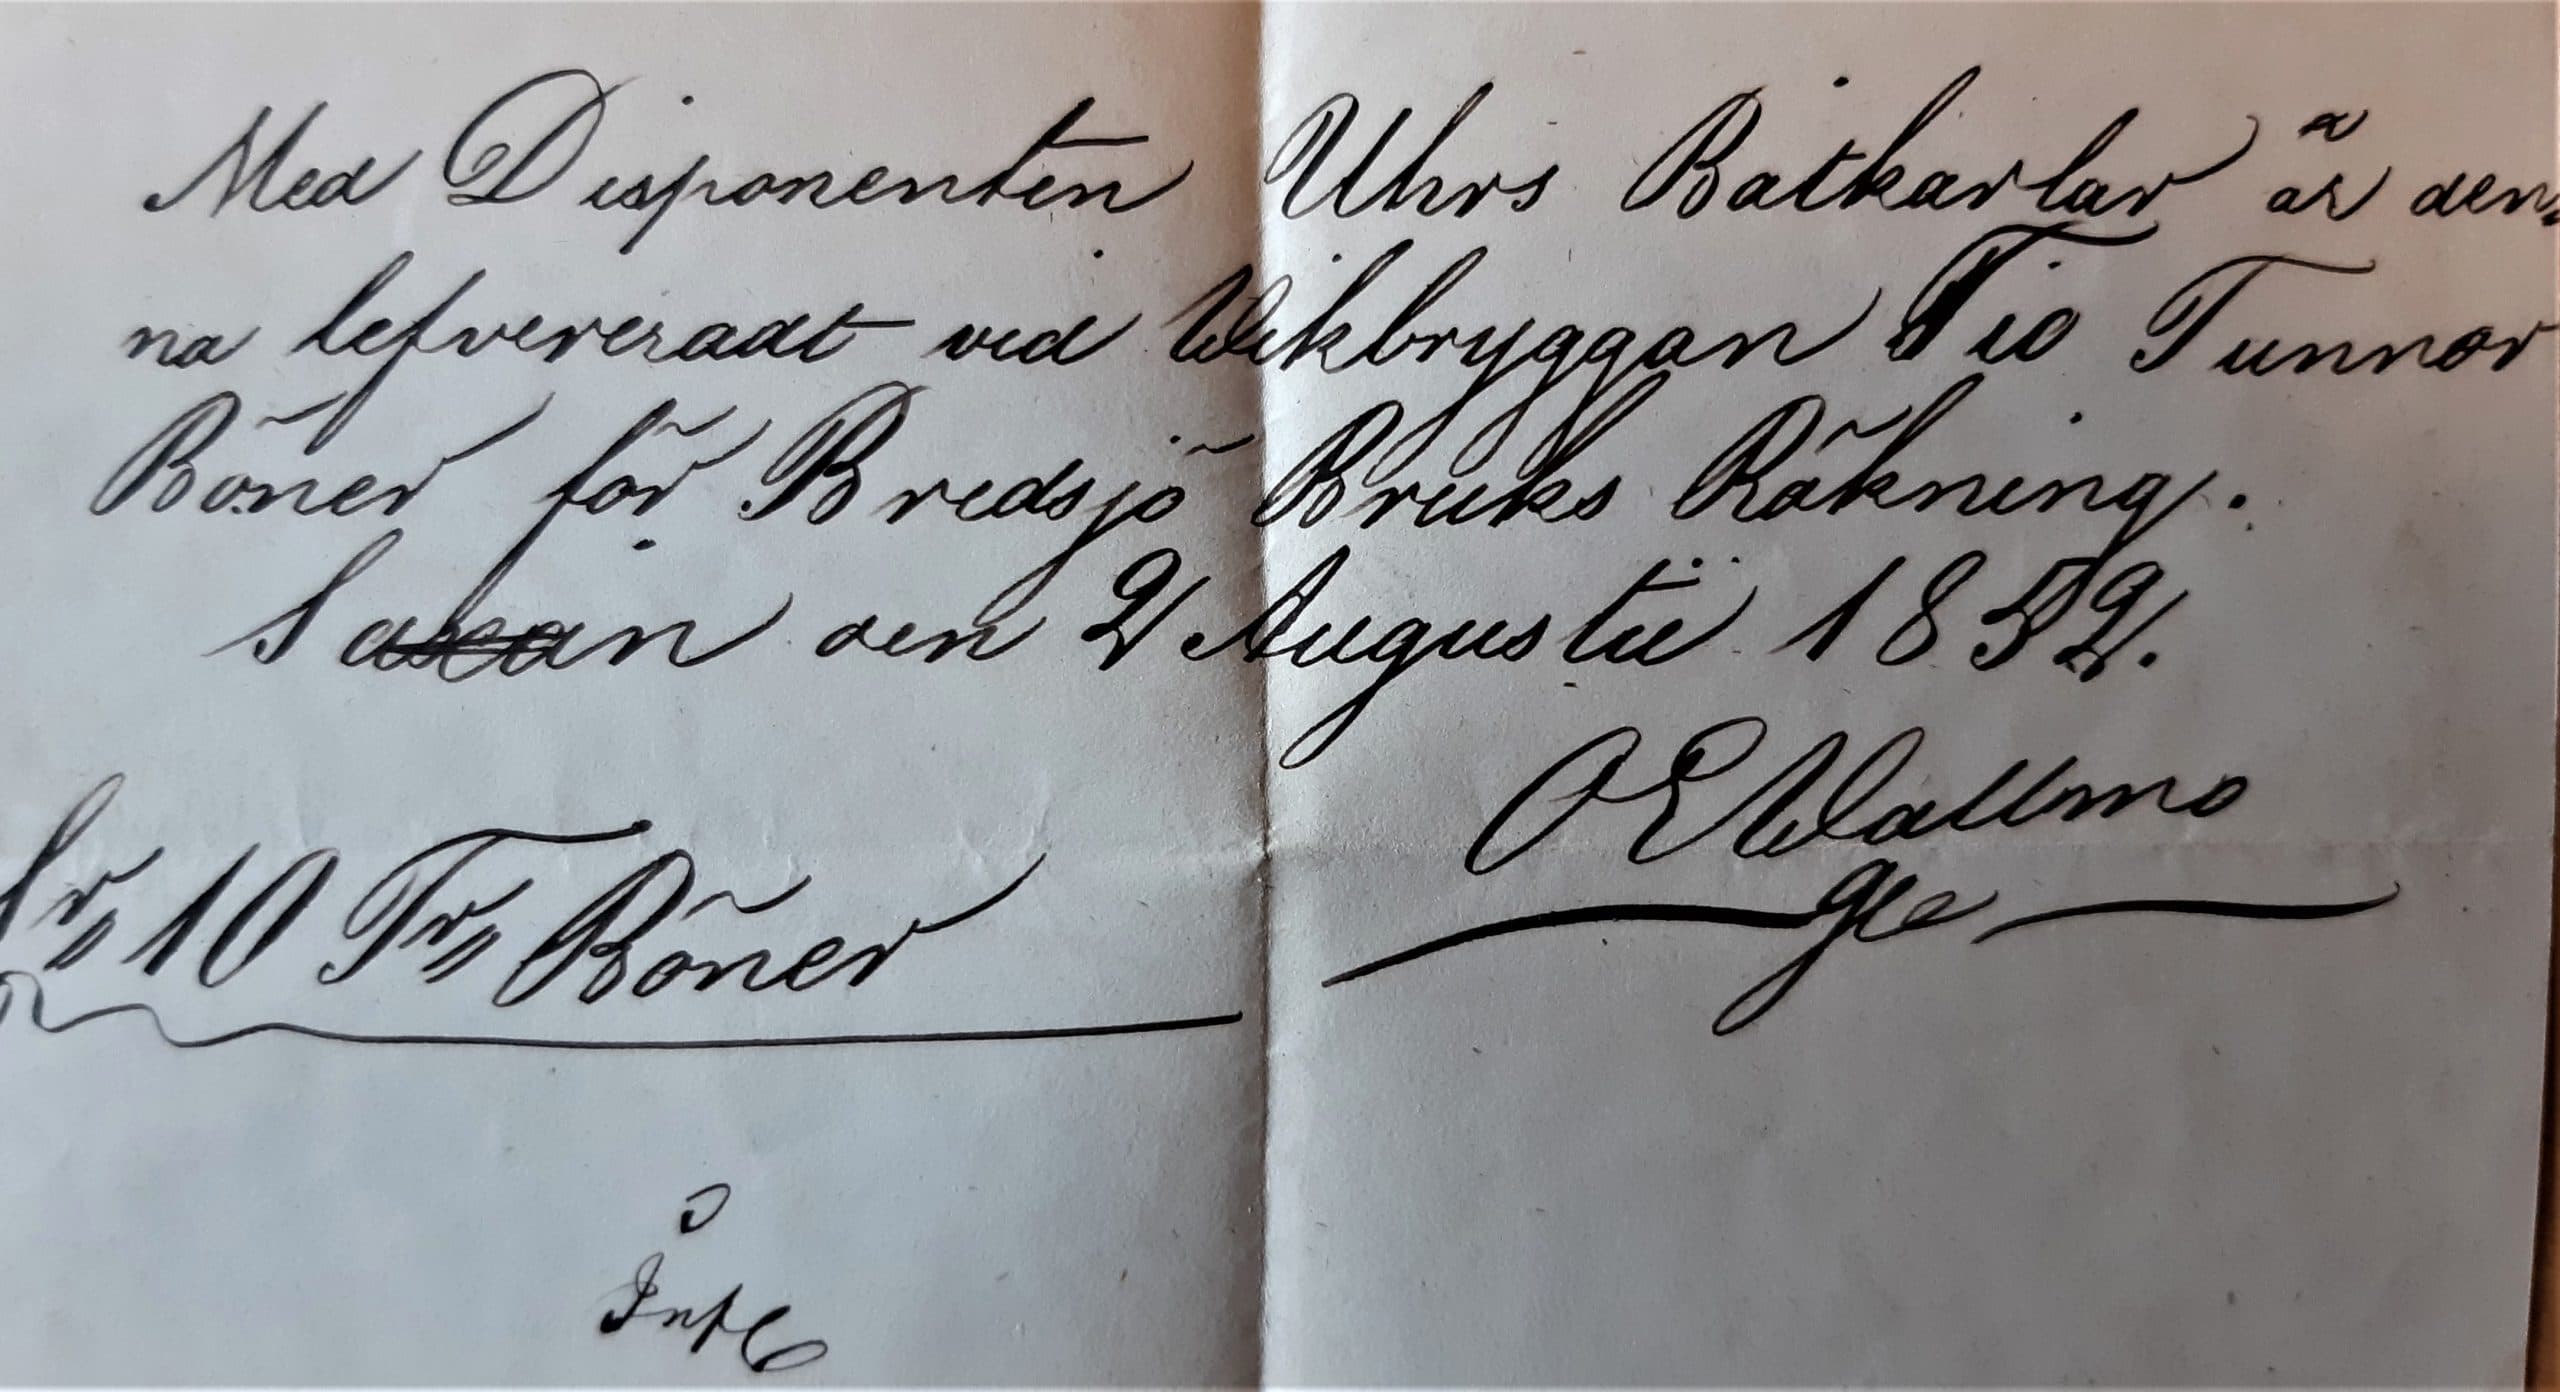 Med Disponenten Uhrs Båtkarlar är den=
na lefvereradt vid Wikbryggan Tio Tunnor
Böner för Bredsjö Bruks Räkning.
Saxån den 2 Augusti 1852.
O E Wallmo
Sr 10 Tr Böner